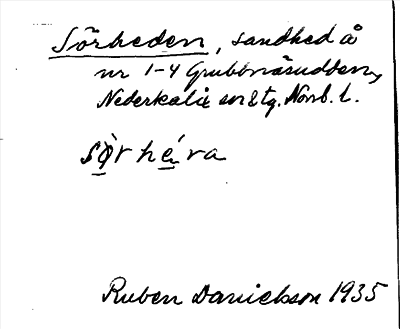 Sörheden, sandhed å
nr 1-4 Grubbnäsudden,
Nederkalix sn & tg. Norrb. l.
sø̀r hé ra
Ruben Danielsson 1935